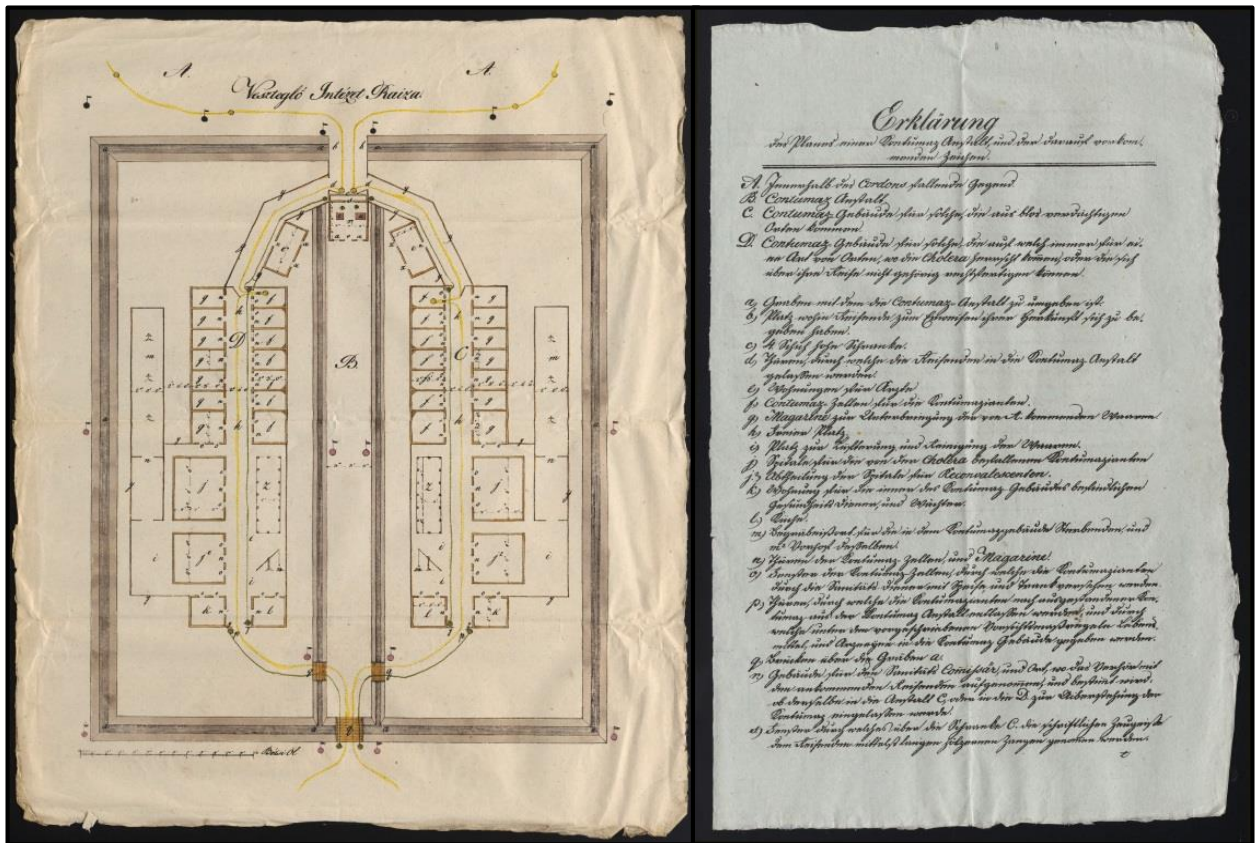 A. A.
Vesztegló Intézet Raiza.
B.
D
C
Erklärung
des Planes einer Kontumaz Anstalt, und der darauf vorkom-
menden Zeichen.
A. Innerhalb des Cordons fallende Gegend
B. Contumaz Anstalt
C. Contumaz Gebäude für solche, die aus blos verdächtigen
Orten kommen.
D. Contumaz Gebäude für solche, die aus welch immer für ei-
ne Art von Orten, wo die Cholera herrscht kommen, oder die sich
über ihre Reise nicht gehörig rechtfertigen können.
a) Graben mit dem die Contumaz-Anstalt zu umgeben ist.
b) Platz wohin Reisende zum Erweisen ihrer Herkunft sich zu be-
geben haben.
c) 4 Schuh hohe Schranke.
d) Thüren, durch welche die Reisenden in die Kontumaz Anstalt
gelassen werden.
e) Wohnungen für Ärzte
f) Contumaz Zellen für die Kontumazianten.
g) Magazine zur Unterbringung der von A. kommenden Waaren
h) Freier Platz
i) Platz zur Lüfterung und Reinigung der Waaren.
j) Spitale für die von der Cholera befallenen Kontumazianten
j) Abtheilung der Spitale für Reconvalescenten.
k) Wohnung für die inner des Kontumaz Gebäudes befindlichen
Gesundheits Diener, und Wächter.
l) Küche.
m) Begräbnißort für die in dem Kontumazgebäude Sterbenden, und
Vorhof desselben.
n) Thüren der Kontumaz Zellen, und Magazine.
o) Fenster der Kontumaz Zellen, durch welche die Kontumazianten
durch die Sanitäts Diener mit Speise und Trank versehen werden.
p) Thüren, durch welche die Kontumazianten nach ausgestandener Kon-
tumaz aus der Kontumaz Anstalt entlassen werden, und durch
welche unter den vorgeschriebenen Vorsichtsmaßregeln Lebens-
mittel, und Arzneyen in die Kontumaz Gebäude gegeben werden.
q) Brücken über die Gräben a.
r) Gebäude für den Sanitäts Comissär, und Ort, wo das Verhör mit
den ankommenden Reisenden aufgenommen, und bestimt wird
ob derselbe in die Anstalt C, oder in die D zur Überstehung der
Kontumaz eingelassen werde.
s) Fenster durch welches über die Schranke C. die schriftlichen Zeugniße
dem Reisenden mittelst langen hölzernen Zangen genomen werden.